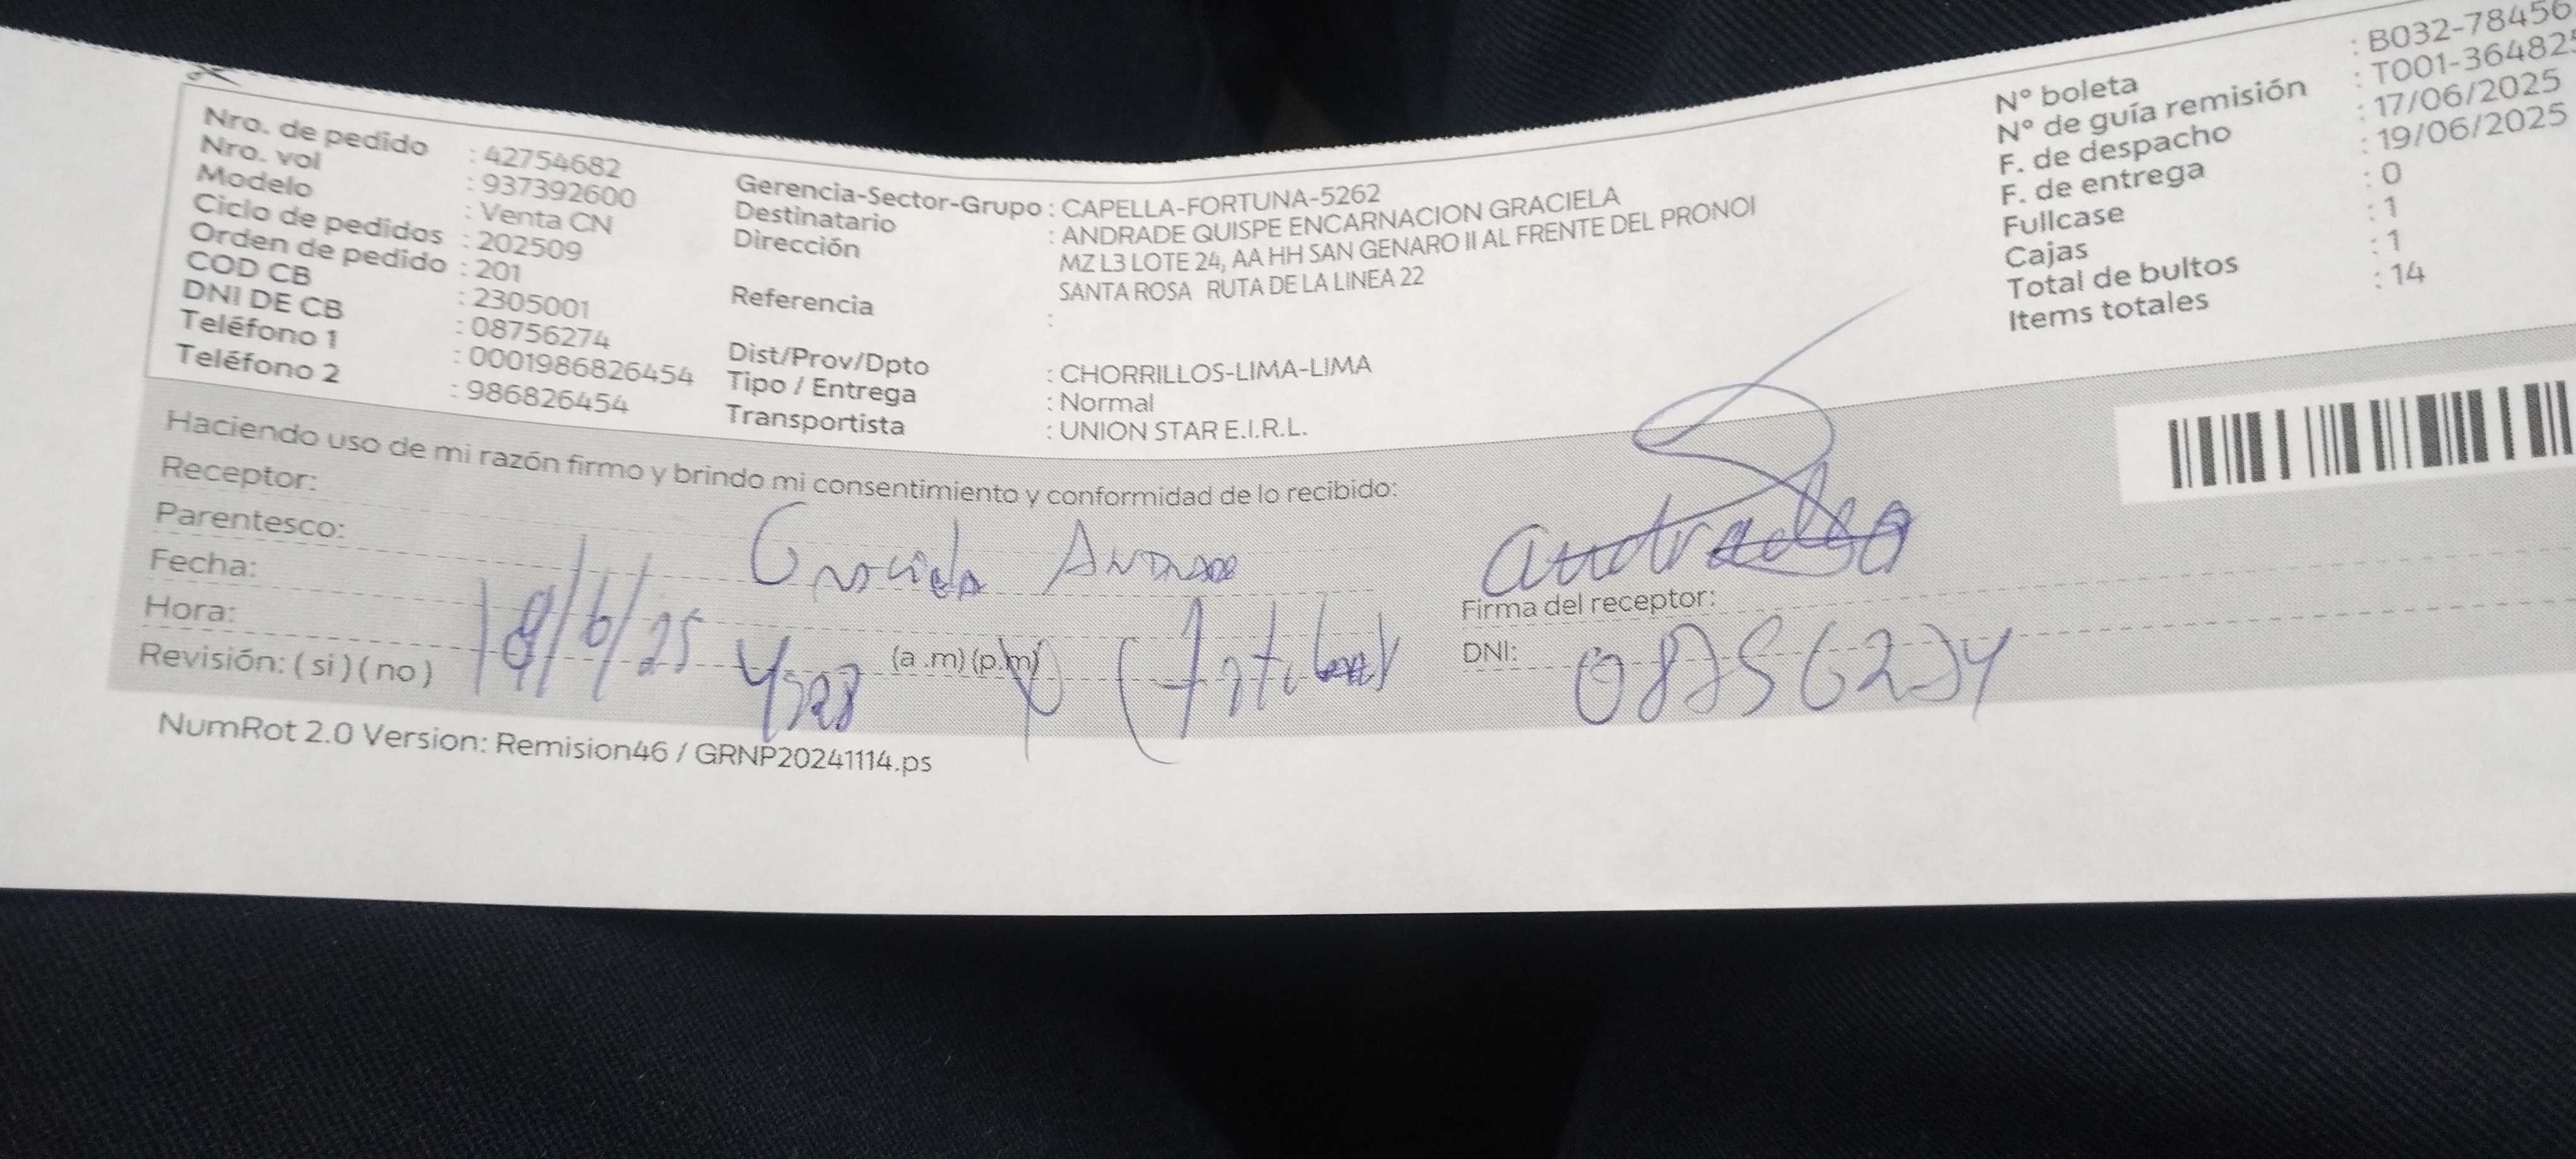 Nro. de pedido : 42754682
Nro. vol : 937392600
Modelo : Venta CN
Ciclo de pedidos : 202509
Orden de pedido : 201
COD CB : 2305001
DNI DE CB : 08756274
Teléfono 1 : 0001986826454
Teléfono 2 : 986826454
Gerencia-Sector-Grupo : CAPELLA-FORTUNA-5262
Destinatario : ANDRADE QUISPE ENCARNACION GRACIELA
Dirección : MZ L3 LOTE 24, AA HH SAN GENARO II AL FRENTE DEL PRONOI
SANTA ROSA RUTA DE LA LINEA 22
Referencia :
Dist/Prov/Dpto : CHORRILLOS-LIMA-LIMA
Tipo / Entrega : Normal
Transportista : UNION STAR E.I.R.L.
N° boleta : B032-78456
N° de guía remisión : T001-36482
F. de despacho : 17/06/2025
F. de entrega : 19/06/2025
Fullcase : 0
Cajas : 1
Total de bultos : 1
Items totales : 14
Haciendo uso de mi razón firmo y brindo mi consentimiento y conformidad de lo recibido:
Receptor:
Parentesco: Graciela Andrade
Fecha: 18/6/25
Hora: (a.m) (p.m)
Revisión: ( si ) ( no )
Firma del receptor:
DNI: 08756274
NumRot 2.0 Version: Remision46 / GRNP20241114.ps